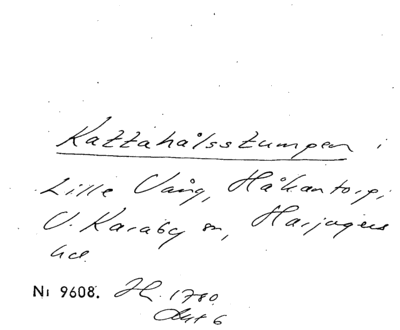 Kattahålsstumpen i
Lille Vång, Håkantorp,
V. Karaby sn, Harjagers
hd.
Nr 9608. Jh. 1780.
Akt 6